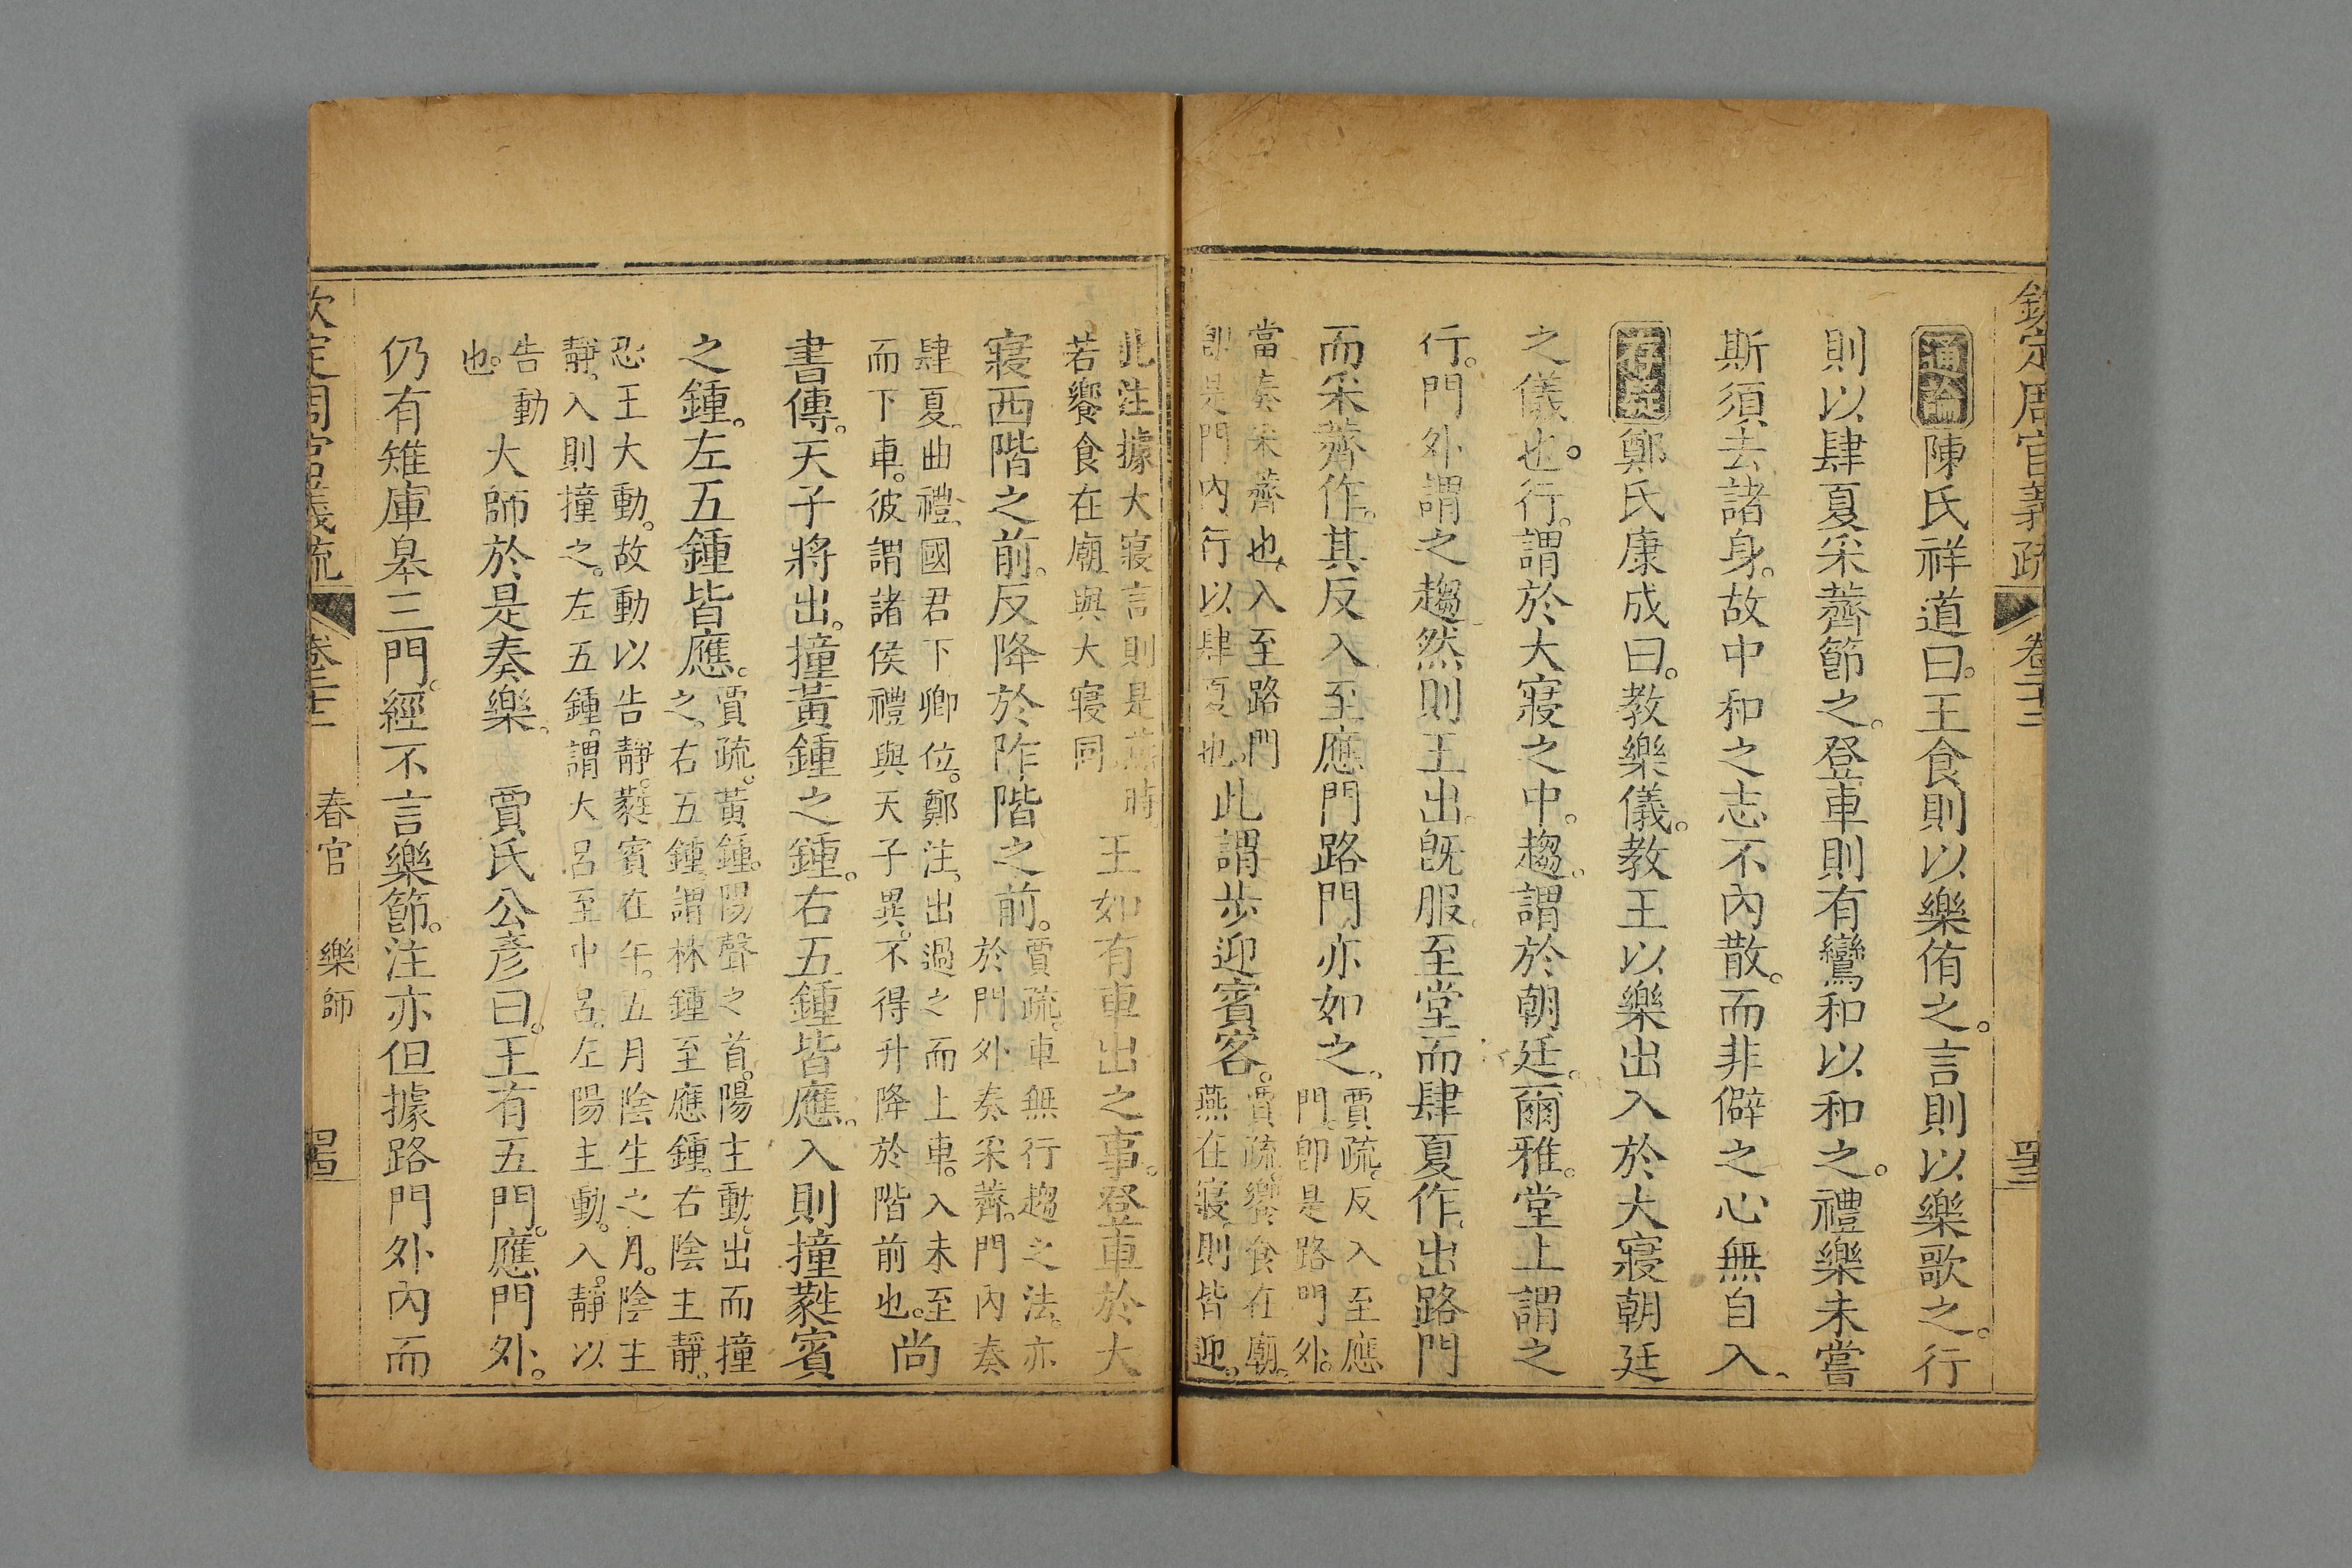 欽定周官義疏 卷二十二 四十三
通論 陳氏祥道曰。王食則以樂侑之。言則以樂歌之。行
則以肆夏采薺節之。登車則有鸞和以和之。禮樂未嘗
斯須去諸身。故中和之志不內散。而非僻之心無自入、
存疑 鄭氏康成曰。教樂儀。教王以樂出入於大寢朝廷
之儀也。行。謂於大寢之中。趨。謂於朝廷。爾雅。堂上謂之
行。門外謂之趨。然則王出。既服。至堂而肆夏作。出路門
而采薺作。其反入至應門路門亦如之。
賈疏。反入至應
門、即是路門外。
當奏采薺也、入至路門
即是門內行以肆夏也。
此謂步迎賓客。
賈疏。饗食在廟。
燕在寢。則皆迎。
此注據大寢言則是燕時。
若饗食在廟、與大寢同
王如有車出之事。登車於大
寢西階之前。反降於阼階之前。
賈疏。車無行趨之法。亦
於門外奏采薺。門內奏
肆夏。曲禮、國君下卿位。鄭注。出過之而上車。入未至
而下車。彼謂諸侯禮與天子異。不得升降於階前也。
尚
書傳。天子將出。撞黃鍾之鍾。右五鍾皆應。入則撞蕤賓
之鍾。左五鍾皆應。
賈疏。黃鍾。陽聲之首。陽主動。出而撞
之。右五鍾、謂林鍾至應鍾。右陰主靜。
恐王大動。故動以告靜。蕤賓在午。五月陰生之月。陰主
靜。入則撞之。左五鍾。謂大呂至中呂。左陽主動。入。靜以
告動
也。
大師於是奏樂。 賈氏公彥曰。王有五門。應門外。
仍有雉庫皋三門。經不言樂節。注亦但據路門外內而
欽定周官義疏 卷二十二 春官 樂師 四十三